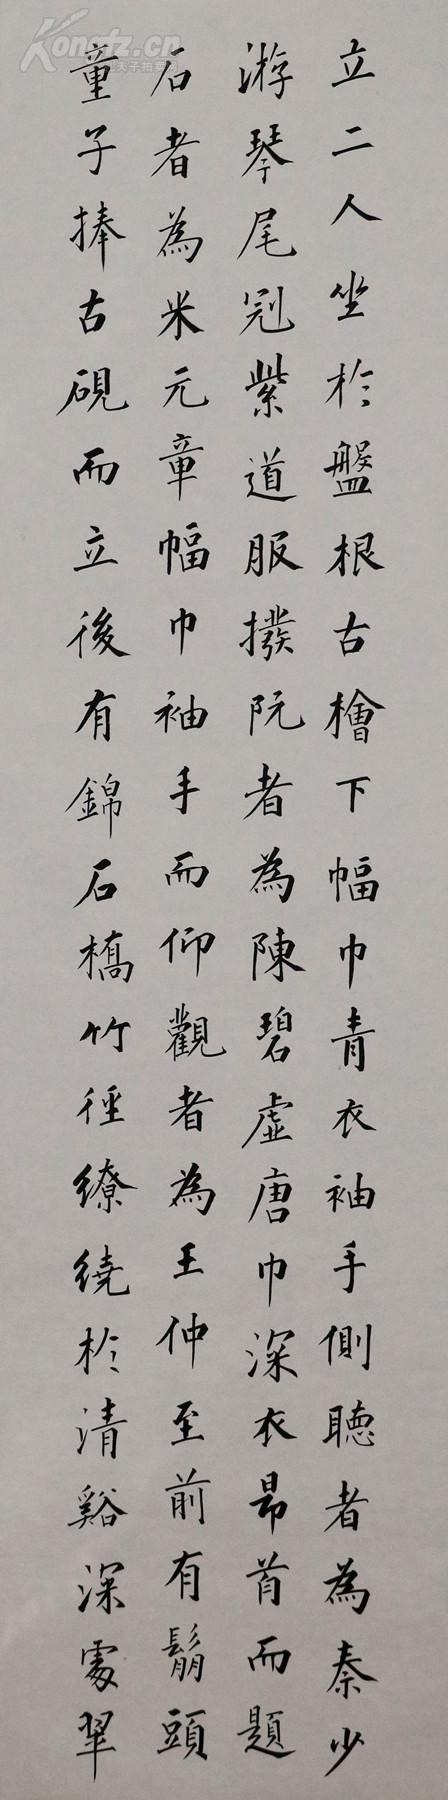 立二人坐於盤根古檜下幅巾青衣袖手側聽者為秦少
游琴尾冠紫道服撥阮者為陳碧虛唐巾深衣昂首而題
石者為米元章幅巾袖手而仰觀者為王仲至前有鬅頭
童子捧古硯而立後有錦石橋竹徑繚繞於清谿深處翠
Kongfz.cn